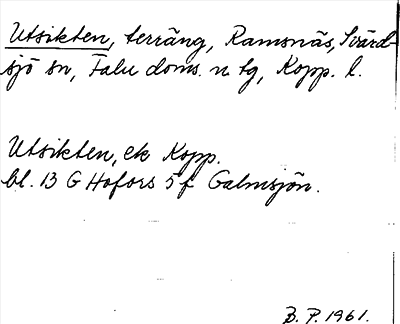 Utsikten, terräng, Ramsnäs, Svärd-
sjö sn, Falu doms. n tg, Kopp. l.
Utsikten, ek Kopp.
bl. 13 G Hofors 5 f Galmsjön.
B. P. 1961.